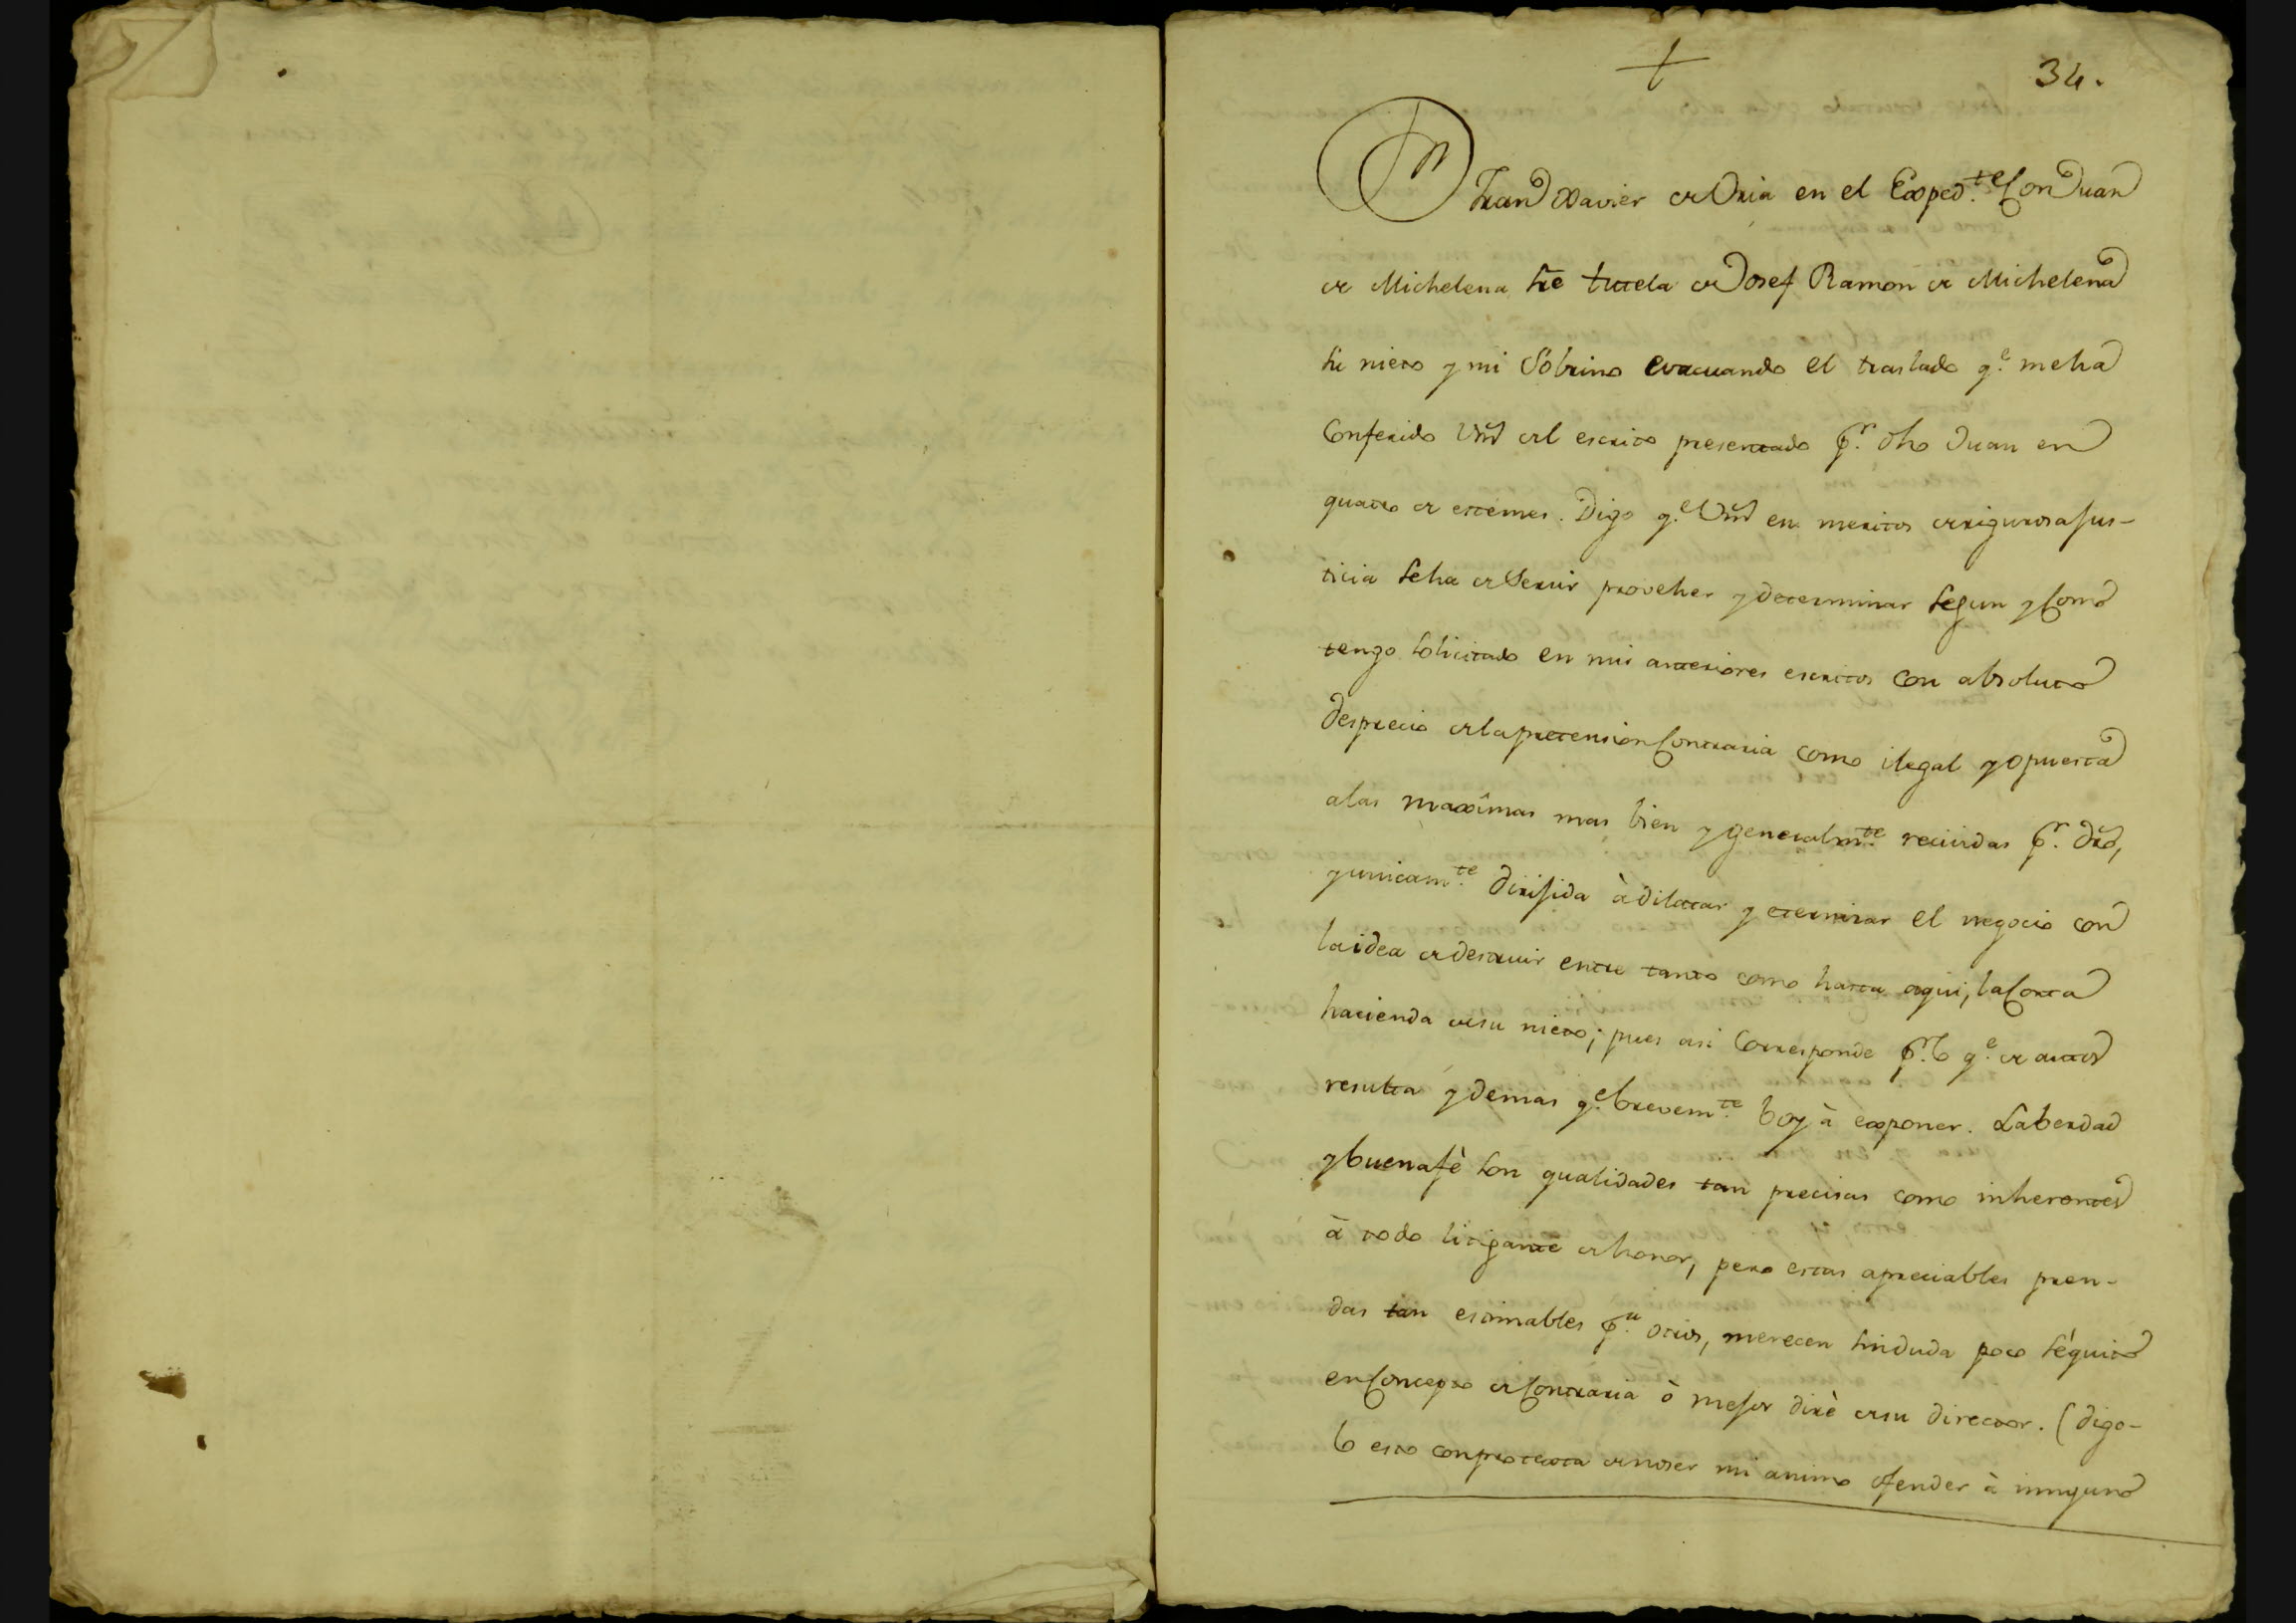 34.
Fran.co Xavier de Oria en el Exped.te con Juan
de Michelena sre tutela de Josef Ramon de Michelena
su nieto y mi Sobrino evacuando el traslado q.e me ha
Conferido Vmd del escrito presentado p.r dho Juan en
quatro de este mes. Digo q.e Vmd en meritos de rigurosa Jus-
ticia se ha de Servir proveher y determinar segun y como
tengo solicitado en mis anteriores escritos con absoluto
desprecio de la pretension Contraria como ilegal y opuesta
a las maximas mas bien y generalm.te recividas p.r dro,
y unicam.te dirijida à dilatar y eternizar el negocio con
la idea de destruir entre tanto como hasta aqui, la corta
hacienda de su nieto; pues asi Corresponde p.r lo q.e de autos
resulta y demas q.e brevem.te boy à exponer. La berdad
y buena fè son qualidades tan precisas como inherentes
à todo litigante de honor, pero estas apreciables pren-
das tan estimables p.a otros, merecen sin duda poco séquito
en Concepto de Contraria ò mejor dirè de su director. (digo-
lo esto con protexta de no ser mi animo ofender à ninguno